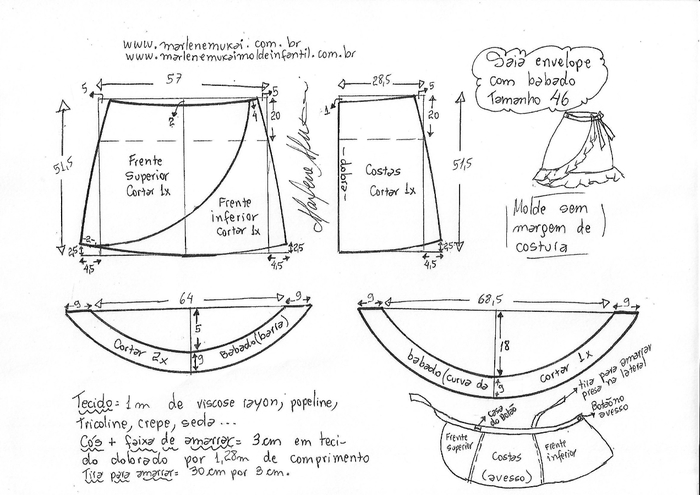 www.marlenemukai.com.br
www.marlenemukaimoldeinfantil.com.br
Saia envelope
com babado
Tamanho 46
57
5
5
2
4
20
51,5
Frente
Superior
Cortar 1x
Frente
inferior
Cortar 1x
2
2,5
4,5
4,5
2,5
Marlene Mukai
28,5
5
1
20
51,5
dobra
Costas
Cortar 1x
2,5
4,5
Molde sem
margem de
costura
9
64
9
5
9
Cortar 2x
Babado (barra)
9
68,5
9
18
9
babado (curva da
Cortar 1x
Tecido = 1m de viscose rayon, popeline,
tricoline, crepe, seda ...
Cós + faixa de amarrar = 3cm em teci-
do dobrado por 1,28m de comprimento
Tira para amarrar = 30cm por 3cm.
casa
do Botão
tira para amarrar
presa na lateral
Botão no
avesso
Frente
Superior
Costas
(avesso)
Frente
inferior